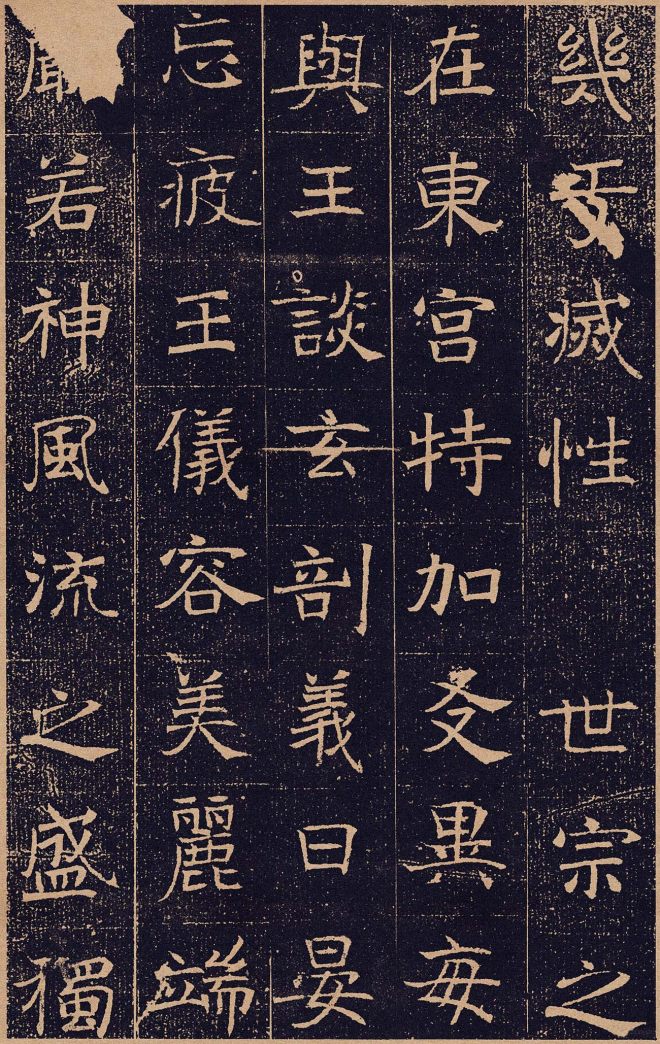 幾于滅性　世宗之
在東宫特加友異每
與王談玄剖義日晏
忘疲王儀容美麗端
若神風流之盛獨